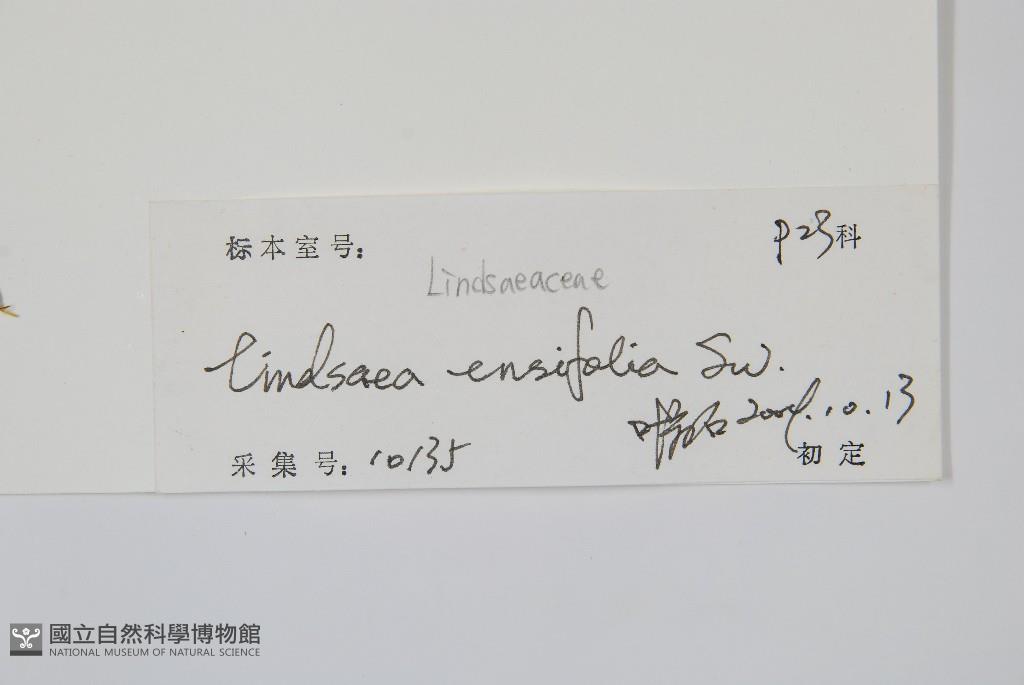 标本室号: P 23科
Lindsaeaceae
Lindsaea ensifolia Sw.
叶 2004.10.13
采集号: 10135 初定
國立自然科學博物館
NATIONAL MUSEUM OF NATURAL SCIENCE